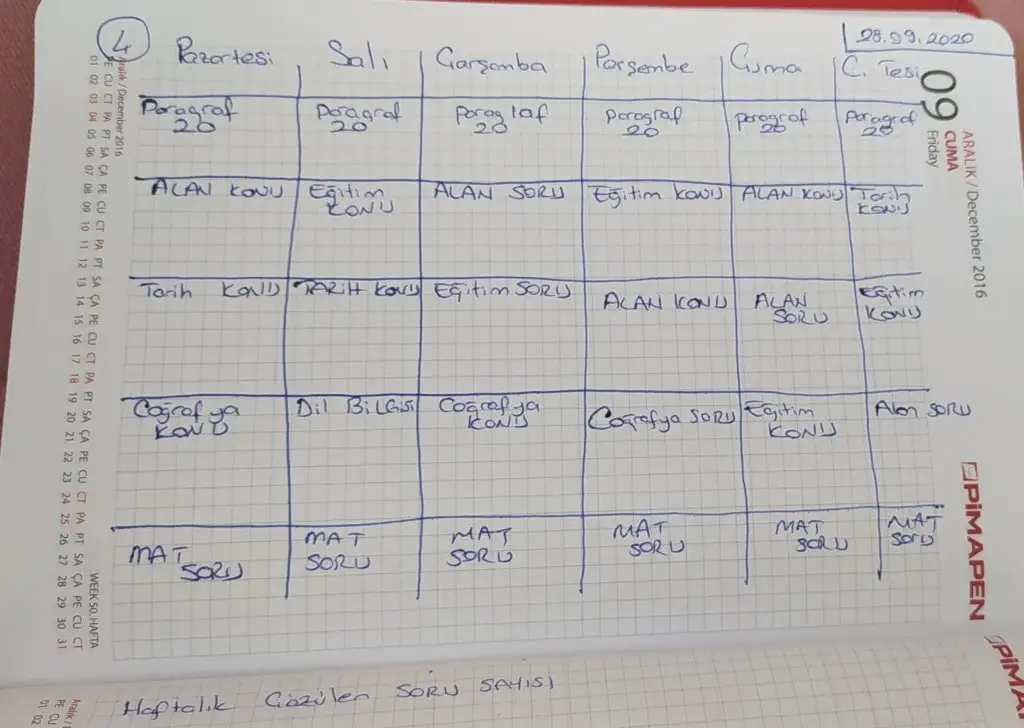 4
28.09.2020
Pazartesi Salı Çarşamba Perşembe Cuma C. Tesi
Paragraf 20 Paragraf 20 Paragraf 20 Paragraf 20 Paragraf 20 Paragraf 20
ALAN KONU Eğitim KONU ALAN SORU Eğitim KONU ALAN KONU Tarih KONU
Tarih KONU TARİH KONU EĞİTİM SORU ALAN KONU ALAN SORU Eğitim KONU
Coğrafya KONU Dil BİLGİSİ Coğrafya KONU Coğrafya SORU Eğitim KONU Alan SORU
MAT SORU MAT SORU MAT SORU MAT SORU MAT SORU MAT SORU
Haftalık Çözülen SORU SAYISI
09
ARALIK / December 2016
CUMA
Friday
PİMAPEN
PİMA
Aralık / December 2016
PE CU CT PA PT SA ÇA PE CU CT PA PT SA ÇA PE CU CT PA PT SA ÇA PE CU CT PA PT SA ÇA PE CU CT
01 02 03 04 05 06 07 08 09 10 11 12 13 14 15 16 17 18 19 20 21 22 23 24 25 26 27 28 29 30 31
WEEK 50. HAFTA
Aralık /
PE CU
01 02